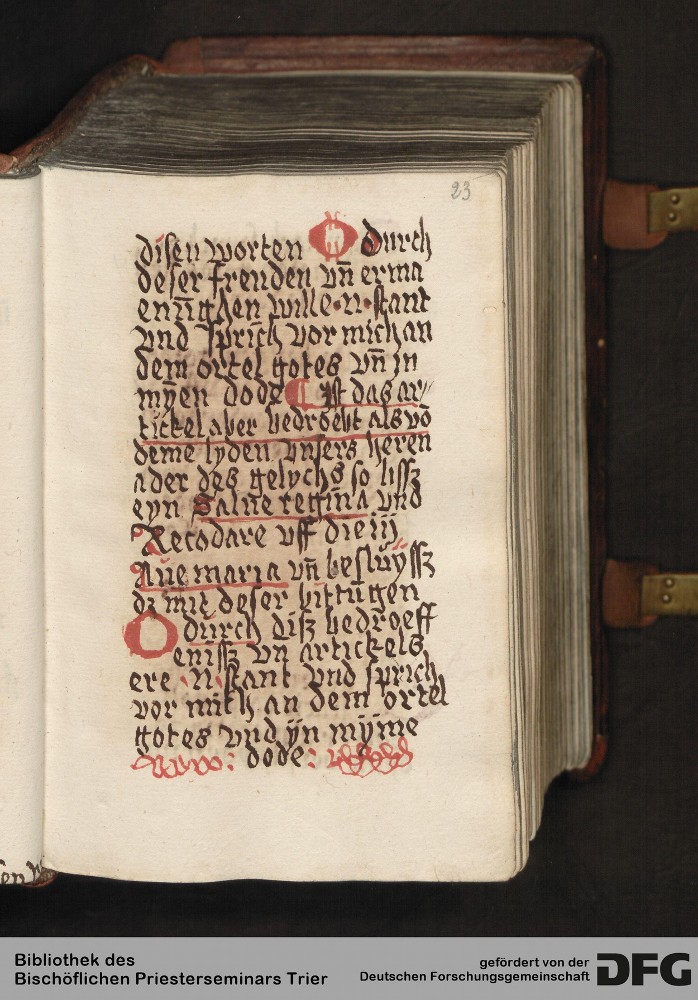 23
disen worten O durch
deser freuden vn̄ erma
enūgen wille · n · stant
vnd sprich vor mich an
dem ortel gotes vn̄ jn
mȳen dode Ist das ar/
tickel aber bedroebt als vō
deme lyden vnsers heren
ader des gelychs so lissz
eyn Salue regina vnd
Recodare vff die iij
Aue maria vn̄ besluyssz
dz mit deser bittūgen
O durch disz bedroeff
enissz vn̄ artickels
ere · n · stant vnd sprich
vor mich an dem ortel
gotes vnd yn mȳme
dode
Bibliothek des
Bischöflichen Priesterseminars Trier
gefördert von der
Deutschen Forschungsgemeinschaft
DFG